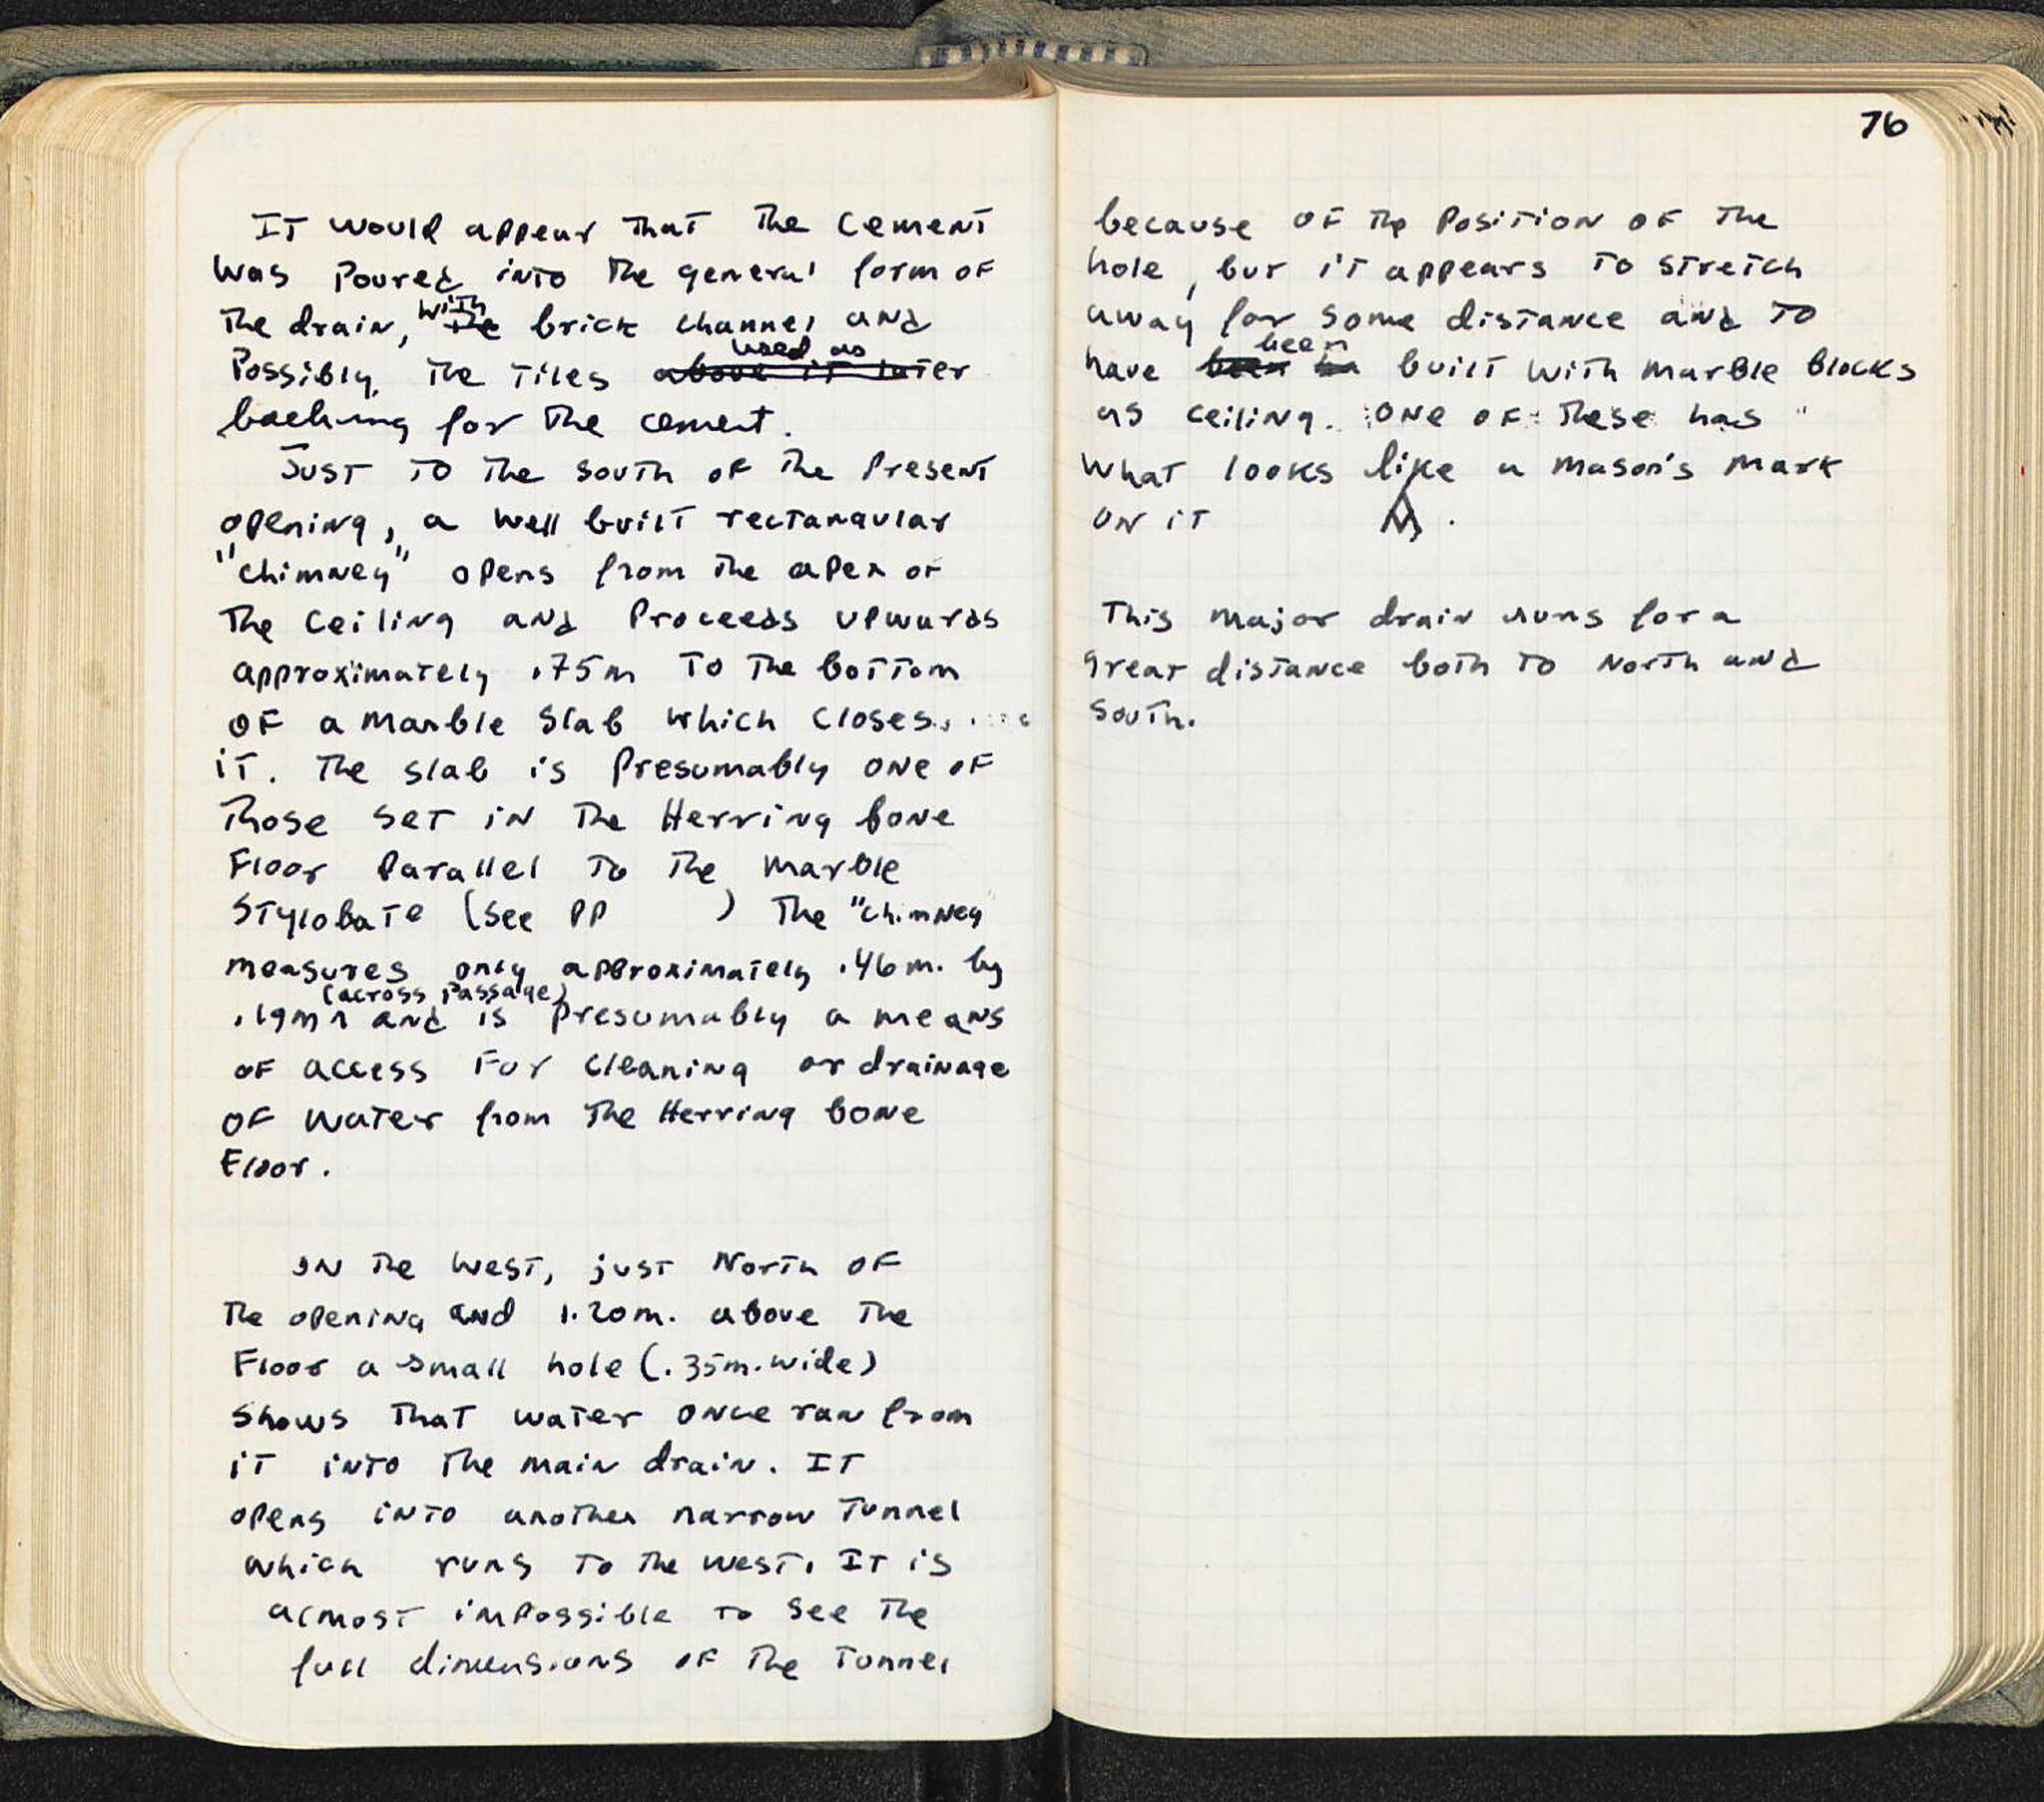 It would appear that the cement
was poured into the general form of
the drain, with the brick channel and
possibly, the tiles above it later used as
backing for the cement.
Just to the south of the present
opening, a well built rectangular
"chimney" opens from the apex of
the ceiling and proceeds upwards
approximately .75m to the bottom
of a marble slab which closes
it. The slab is presumably one of
those set in the Herring bone
Floor parallel to the marble
stylobate (see pp      ) The "chimney"
measures only approximately .46m. by
.19m (across passage) and is presumably a means
of access for cleaning or drainage
of water from the Herring bone
Floor.
In the west, just North of
the opening and 1.20m. above the
Floor a small hole (.35m. wide)
shows that water once ran from
it into the main drain. It
opens into another narrow tunnel
which runs to the west. It is
almost impossible to see the
full dimensions of the tunnel
76
because of the position of the
hole, but it appears to stretch
away for some distance and to
have been built with marble blocks
as ceiling. One of these has
what looks like a mason's mark
on it      .
This major drain runs for a
great distance both to North and
South.